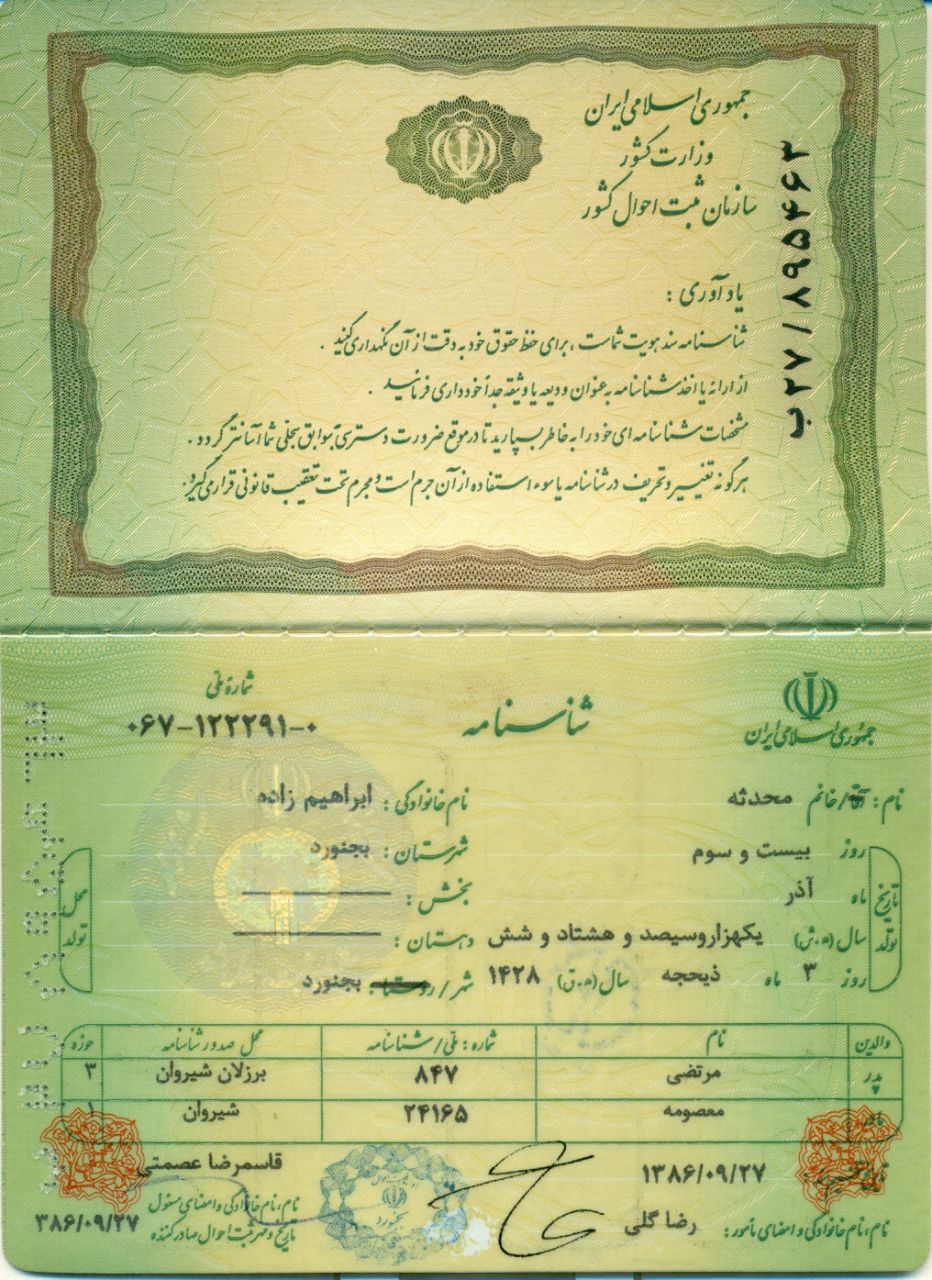 جمهوری اسلامی ایران
وزارت کشور
سازمان ثبت احوال کشور
ب ۲۷/۸۹۵۴۶۳
یادآوری :
شناسنامه سند هویت شماست ، برای حفظ حقوق خود به دقت از آن نگهداری کنید .
از ارائه یا اخذ شناسنامه به عنوان ودیعه یا وثیقه جداً خودداری فرمائید .
مشخصات شناسنامه ای خود را به خاطر بسپارید تا در موقع ضرورت دسترسی به سوابق سجلی شما آسانتر گردد .
هرگونه تغییر و تحریف در شناسنامه یا سوء استفاده از آن جرم است و مجرم تحت تعقیب قانونی قرار می‌گیرد .
جمهوری اسلامی ایران
شناسنامه
شماره ملی
۰۶۷-۱۲۲۲۹۱-۰
نام : آقا/خانم محدثه
نام خانوادگی : ابراهیم زاده
تاریخ تولد
روز بیست و سوم
ماه آذر
سال (ه.ش) یکهزاروسیصد و هشتاد و شش
روز ۳ ماه ذیحجه سال (ه.ق) ۱۴۲۸
محل تولد
شهرستان : بجنورد
بخش :
دهستان :
شهر/روستا : بجنورد
والدین نام شماره : ملی/شناسنامه محل صدور شناسنامه حوزه
پدر مرتضی ۸۴۷ برزلان شیروان ۳
مادر معصومه ۲۴۱۶۵ شیروان ۱
۱۳۸۶/۰۹/۲۷
نام، نام خانوادگی و امضای مأمور : رضا گلی
قاسمرضا عصمتی
نام، نام خانوادگی و امضای مسئول
تاریخ و مهر ثبت احوال صادرکننده
۳۸۶/۰۹/۲۷
بجنورد